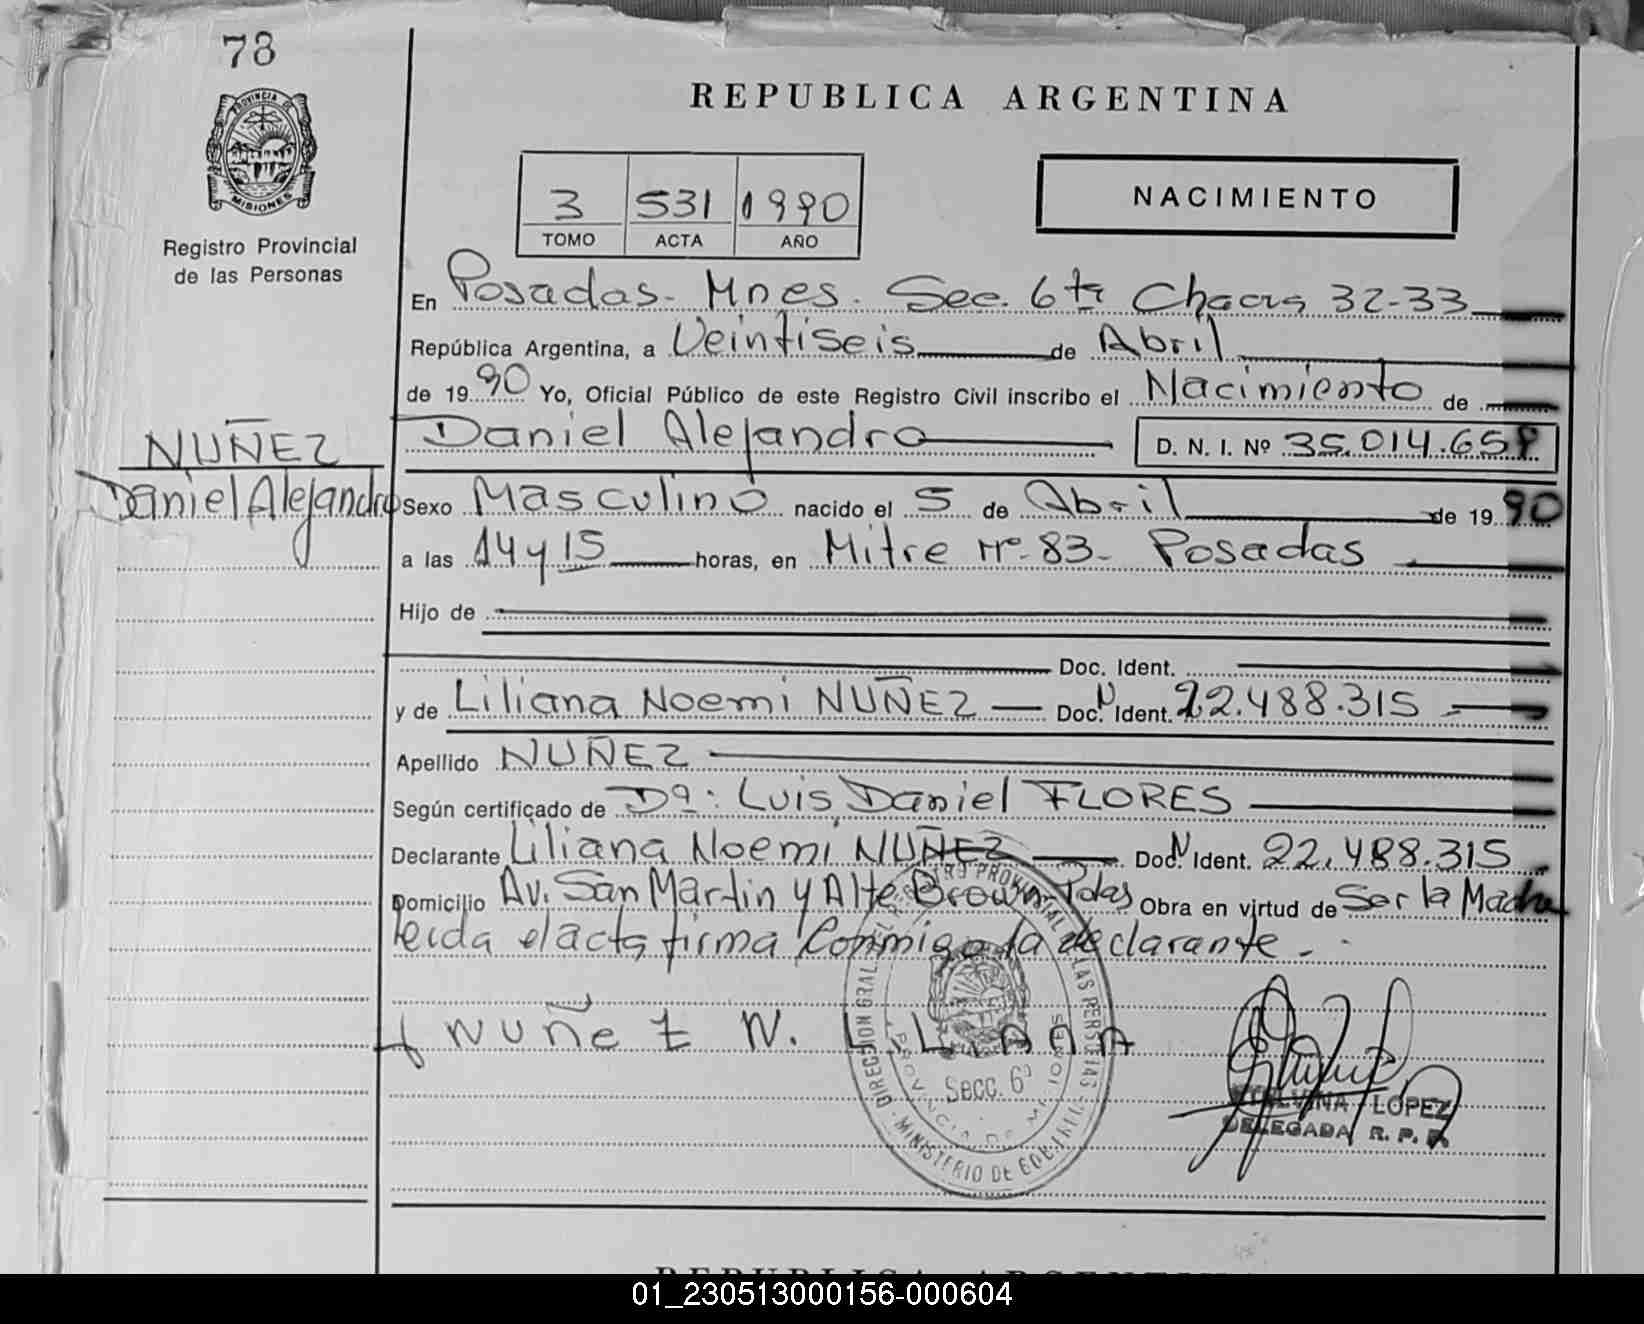 78
REPUBLICA ARGENTINA
PROVINCIA DE
MISIONES
Registro Provincial
de las Personas
3 531 1990
TOMO ACTA AÑO
NACIMIENTO
En Posadas - Mnes. Sec. 6ta Chacra 32-33
República Argentina, a Veintiseis de Abril
de 1990 Yo, Oficial Público de este Registro Civil inscribo el Nacimiento de
NUÑEZ
Daniel Alejandro
Daniel Alejandro D. N. I. Nº 35.014.65
Sexo Masculino nacido el 5 de Abril de 1990
a las 14 y 15 horas, en Mitre Nº 83 - Posadas
Hijo de
Doc. Ident.
y de Liliana Noemi NUÑEZ Doc. N Ident. 22.488.315
Apellido NUÑEZ
Según certificado de Dº: Luis Daniel FLORES
Declarante Liliana Noemi NUÑEZ Doc. N Ident. 22.488.315
Domicilio Av. San Martin y Alte Brown - Pdas Obra en virtud de Ser la Madre
leida el acta firma conmigo la declarante.
NUÑEZ N. LILIANA
DIRECCION GRAL. DEL REGISTRO PROVINCIAL DE LAS PERSONAS
PROVINCIA DE MISIONES
Secc. 6ª
MINISTERIO DE GOBIERNO
LOPEZ
DELEGADA R. P. P.
REPUBLICA ARGENTINA
01_230513000156-000604